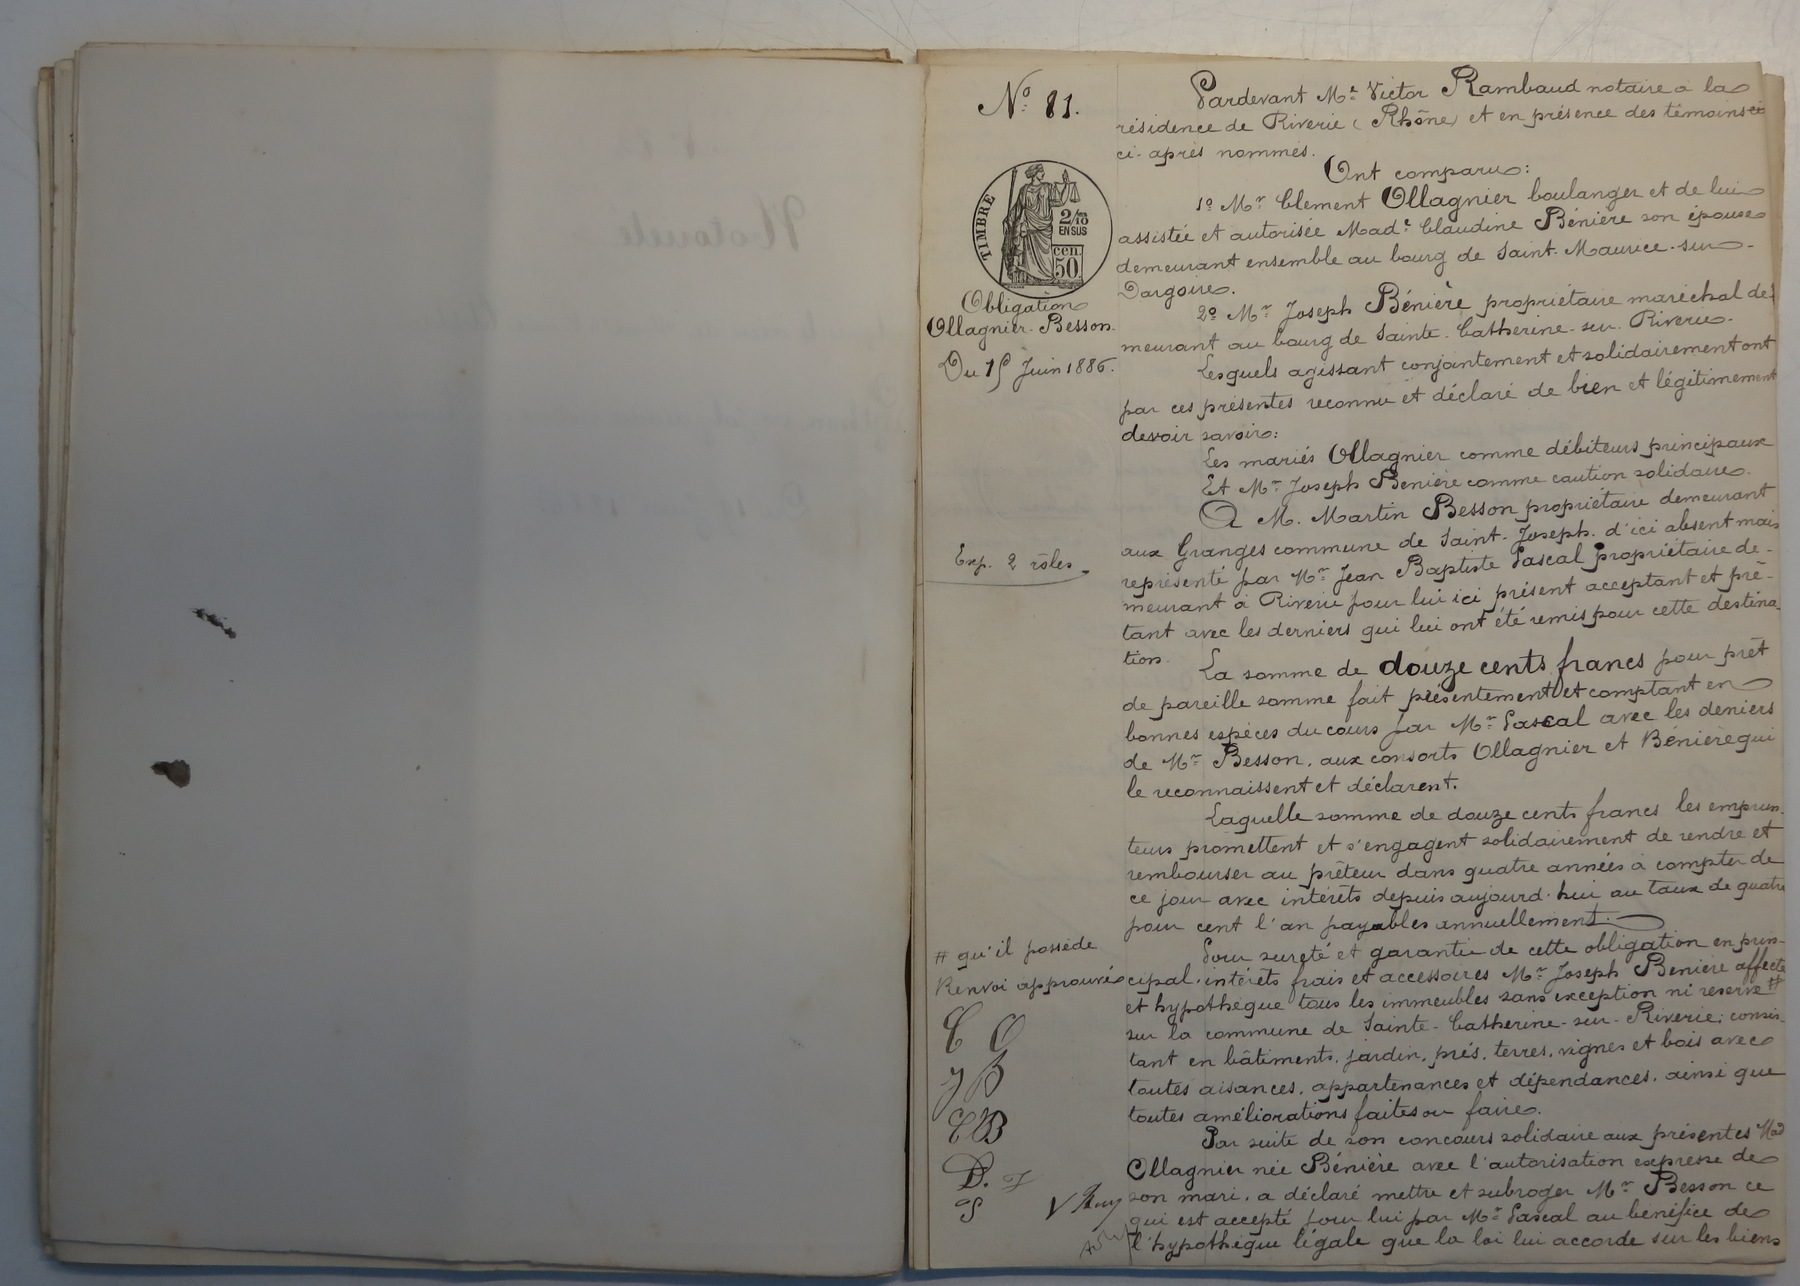 N° 81.
TIMBRE
2/10
EN SUS
cen.
50.
Obligation
Ollagnier-Besson.
Du 15 Juin 1886.
Exp. 2 rôles
# qu'il possède
Renvoi approuvé
C O
J B
C B
D.
Pardevant Me Victor Rambaud notaire à la
résidence de Riverie (Rhône) et en présence des témoins
ci-après nommés.
Ont comparu:
1º Mr Clement Ollagnier boulanger et de lui
assistée et autorisée Made Claudine Bénière son épouse
demeurant ensemble au bourg de Saint-Maurice-sur-
Dargoire.
2º Mr Joseph Bénière propriétaire maréchal de-
meurant au bourg de Sainte-Catherine-sur-Riverie.
Lesquels agissant conjointement et solidairement ont
par ces présentes reconnu et déclaré de bien et légitimement
devoir savoir:
Les mariés Ollagnier comme débiteurs principaux
Et Mr Joseph Bénière comme caution solidaire.
A M. Martin Besson propriétaire demeurant
aux Granges commune de Saint-Joseph. d'ici absent mais
représenté par Mr Jean Baptiste Pascal propriétaire de-
meurant à Riverie pour lui ici présent acceptant et prê-
tant avec les derniers qui lui ont été remis pour cette destina-
tion.
La somme de douze cents francs pour prêt
de pareille somme fait présentement et comptant en
bonnes espèces du cours par Mr Pascal avec les deniers
de Mr Besson, aux consorts Ollagnier et Bénière qui
le reconnaissent et déclarent.
Laquelle somme de douze cents francs les emprun-
teurs promettent et s'engagent solidairement de rendre et
rembourser au prêteur dans quatre années à compter de
ce jour avec intérêts depuis aujourd'hui au taux de quatre
pour cent l'an payables annuellement.
Pour sureté et garantie de cette obligation en prin-
cipal, intérêts frais et accessoires Mr Joseph Bénière affecte
et hypothèque tous les immeubles sans exception ni reserve #
sur la commune de Sainte-Catherine-sur-Riverie; consis-
tant en bâtiments, jardin, prés, terres, vignes et bois avec
toutes aisances, appartenances et dépendances, ainsi que
toutes améliorations faites ou faire.
Par suite de son concours solidaire aux présentes Mad
Ollagnier née Bénière avec l'autorisation expresse de
son mari, a déclaré mettre et subroger Mr Besson ce
qui est accepté pour lui par Mr Pascal au bénéfice de
l'hypothèque légale que la loi lui accorde sur les biens